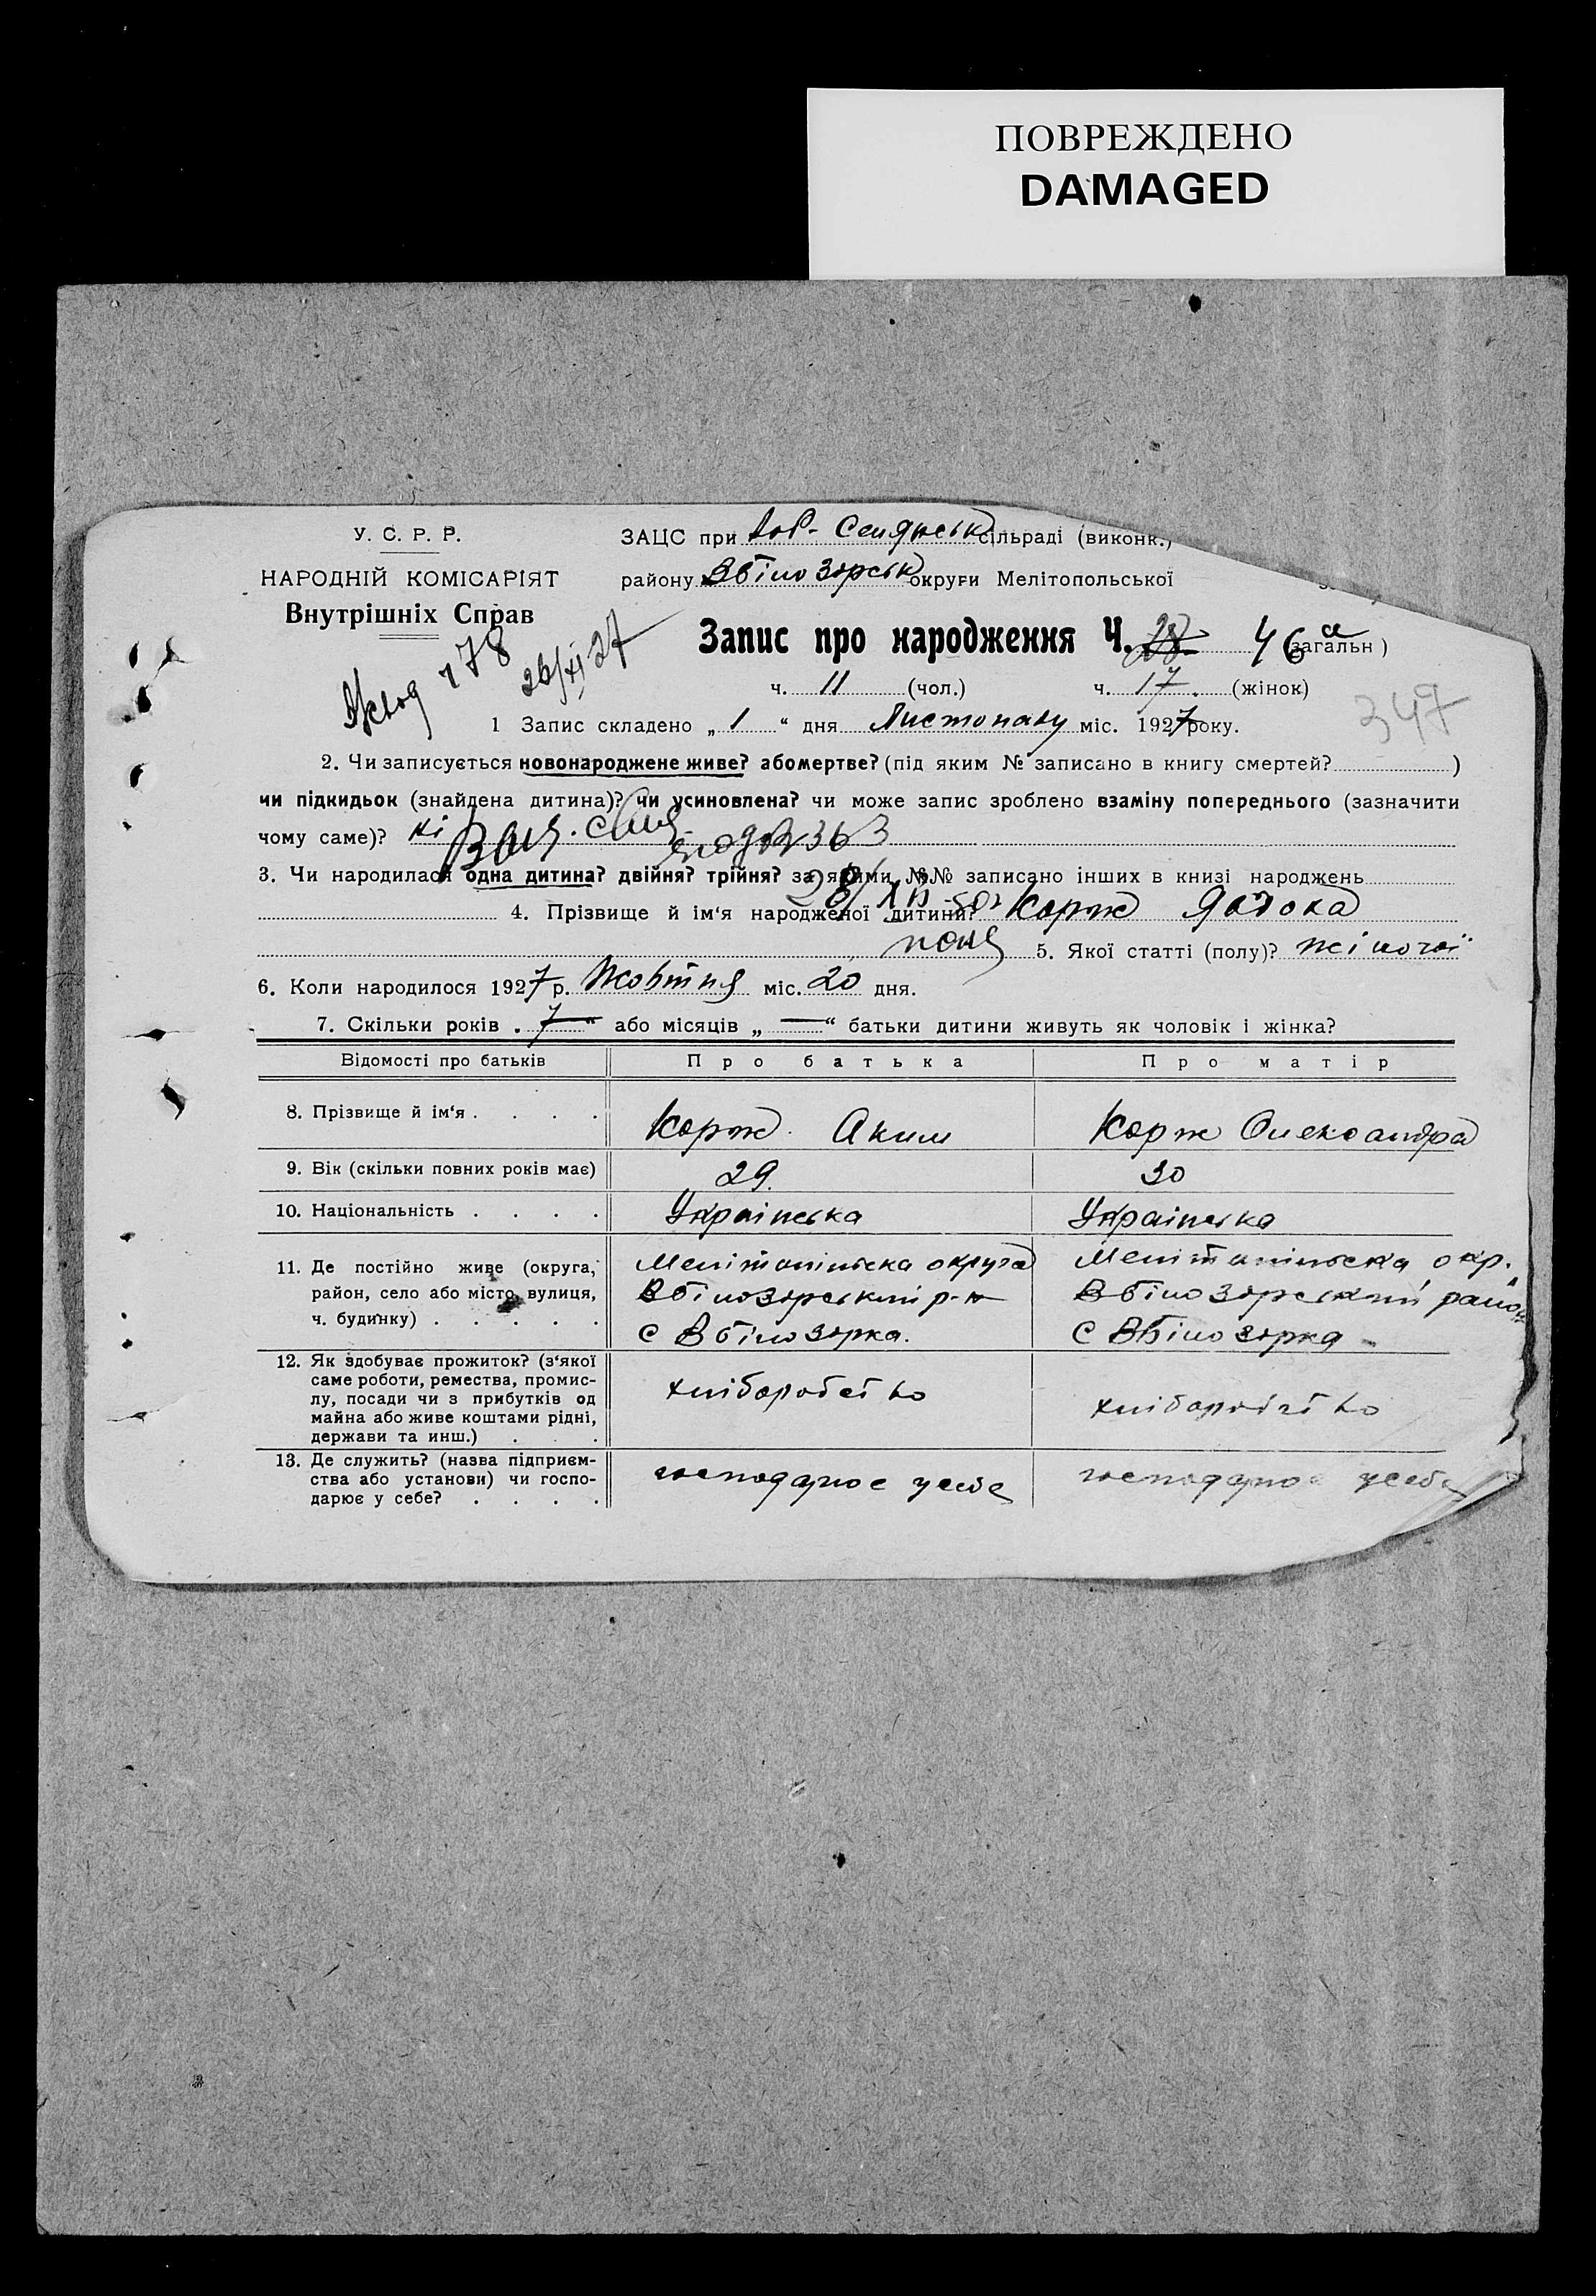 ПОВРЕЖДЕНО
DAMAGED
У. С. Р. Р.
НАРОДНІЙ КОМІСАРІЯТ
Внутрішніх Справ
ЗАЦС при сільраді (виконк.)
району Вбілозорськ округи Мелітопольської
178
26/XI 27
Запис про народження Ч. 28 46а (загальн)
ч. 11 (чол.) ч. 17. (жінок)
347
1 Запис складено „ 1 “ дня Листопаду міс. 1927 року.
2. Чи записується новонароджене живе? або мертве? (під яким № записано в книгу смертей? )
чи підкидьок (знайдена дитина)? чи усиновлена? чи може запис зроблено взаміну попереднього (зазначити
чому саме)? ні
363
3. Чи народилася одна дитина? двійня? трійня? за якими №№ записано інших в книзі народжень
4. Прізвище й ім‘я народженої дитини? Корж
5. Якої статті (полу)? жіночої
6. Коли народилося 1927 р. Жовтня міс. 20 дня.
7. Скільки років „ 7 “ або місяців „ — “ батьки дитини живуть як чоловік і жінка?
Відомості про батьків Про батька Про матір
8. Прізвище й ім‘я . . . . Корж Аким Корж Олександра
9. Вік (скільки повних років має) 29. 30
10. Національність . . . . Українська Українська
11. Де постійно живе (округа, Мелітопільська округа Мелітопільська окр.
район, село або місто, вулиця, Вбілозорський р-н Вбілозорський район
ч. будинку) . . . . . с Вбілозорка. с Вбілозорка
12. Як здобуває прожиток? (з‘якої
саме роботи, ремества, промис-
лу, посади чи з прибутків од
майна або живе коштами рідні,
держави та инш.) . . .
хліборобство хліборобство
13. Де служить? (назва підприєм-
ства або установи) чи госпо-
дарює у себе? . . . .
господарює у себе господарює у себе